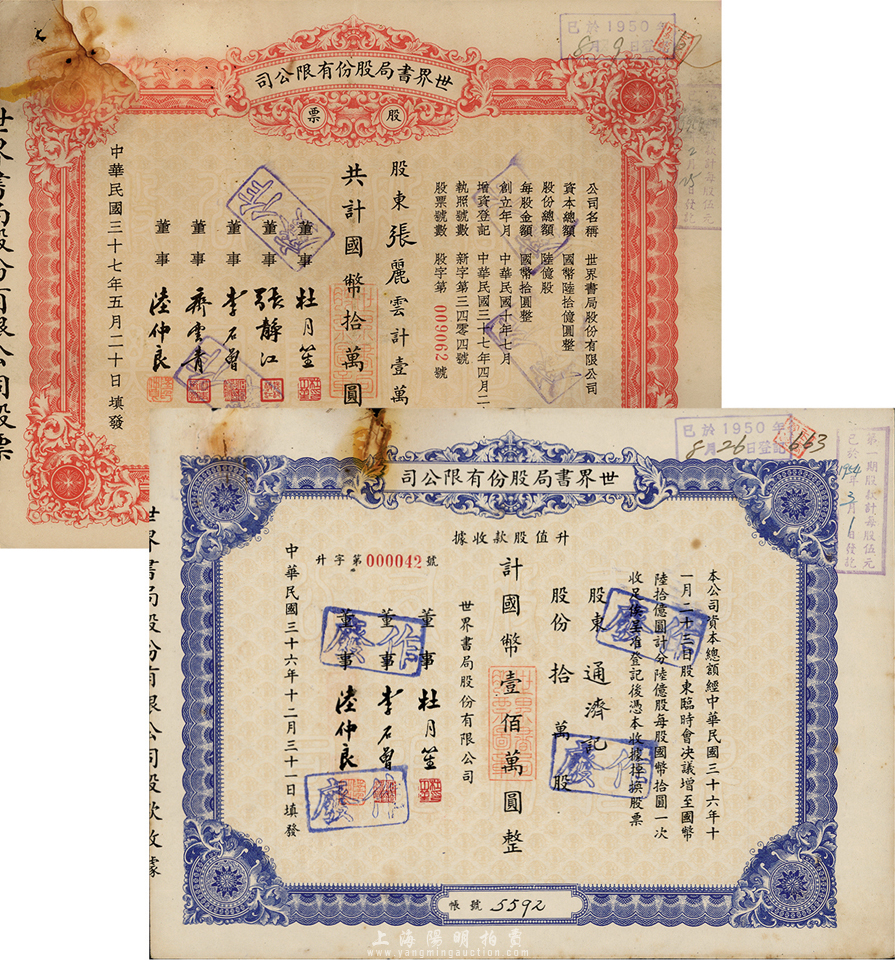 世界書局股份有限公司股票
世界書局股份有限公司
股票
公司名稱 世界書局股份有限公司
資本總額 國幣陸拾億圓整
股份總額 陸億股
每股金額 國幣拾圓整
創立年月 中華民國十年七月
增資登記 中華民國三十七年四月二
執照號數 新字第三四零四號
股票號數 股字第009062號
股東張麗雲計壹萬
共計國幣拾萬圓
董事 杜月笙
董事 張靜江
董事 李石曾
董事 齊雲青
董事 陸仲良
中華民國三十七年五月二十日填發
已於1950年
8月9日登記
世界書局股份有限公司股款收據
世界書局股份有限公司
升值股款收據
升字第000042號
本公司資本總額經中華民國三十六年十
一月二十三日股東臨時會決議增至國幣
陸拾億圓計分陸億股每股國幣拾圓一次
收足俟呈准登記後憑本收據掉換股票
股東 通濟記
股份拾萬股
計國幣壹佰萬圓整
世界書局股份有限公司
董事 杜月笙
董事 李石曾
董事 陸仲良
中華民國三十六年十二月三十一日填發
作廢
作廢
作廢
作廢
帳號 5592
已於1950年
8月26日登記663
第一期股款計每股伍元
已於1954年3月1日發訖
上海陽明拍賣
www.yangmingauction.com